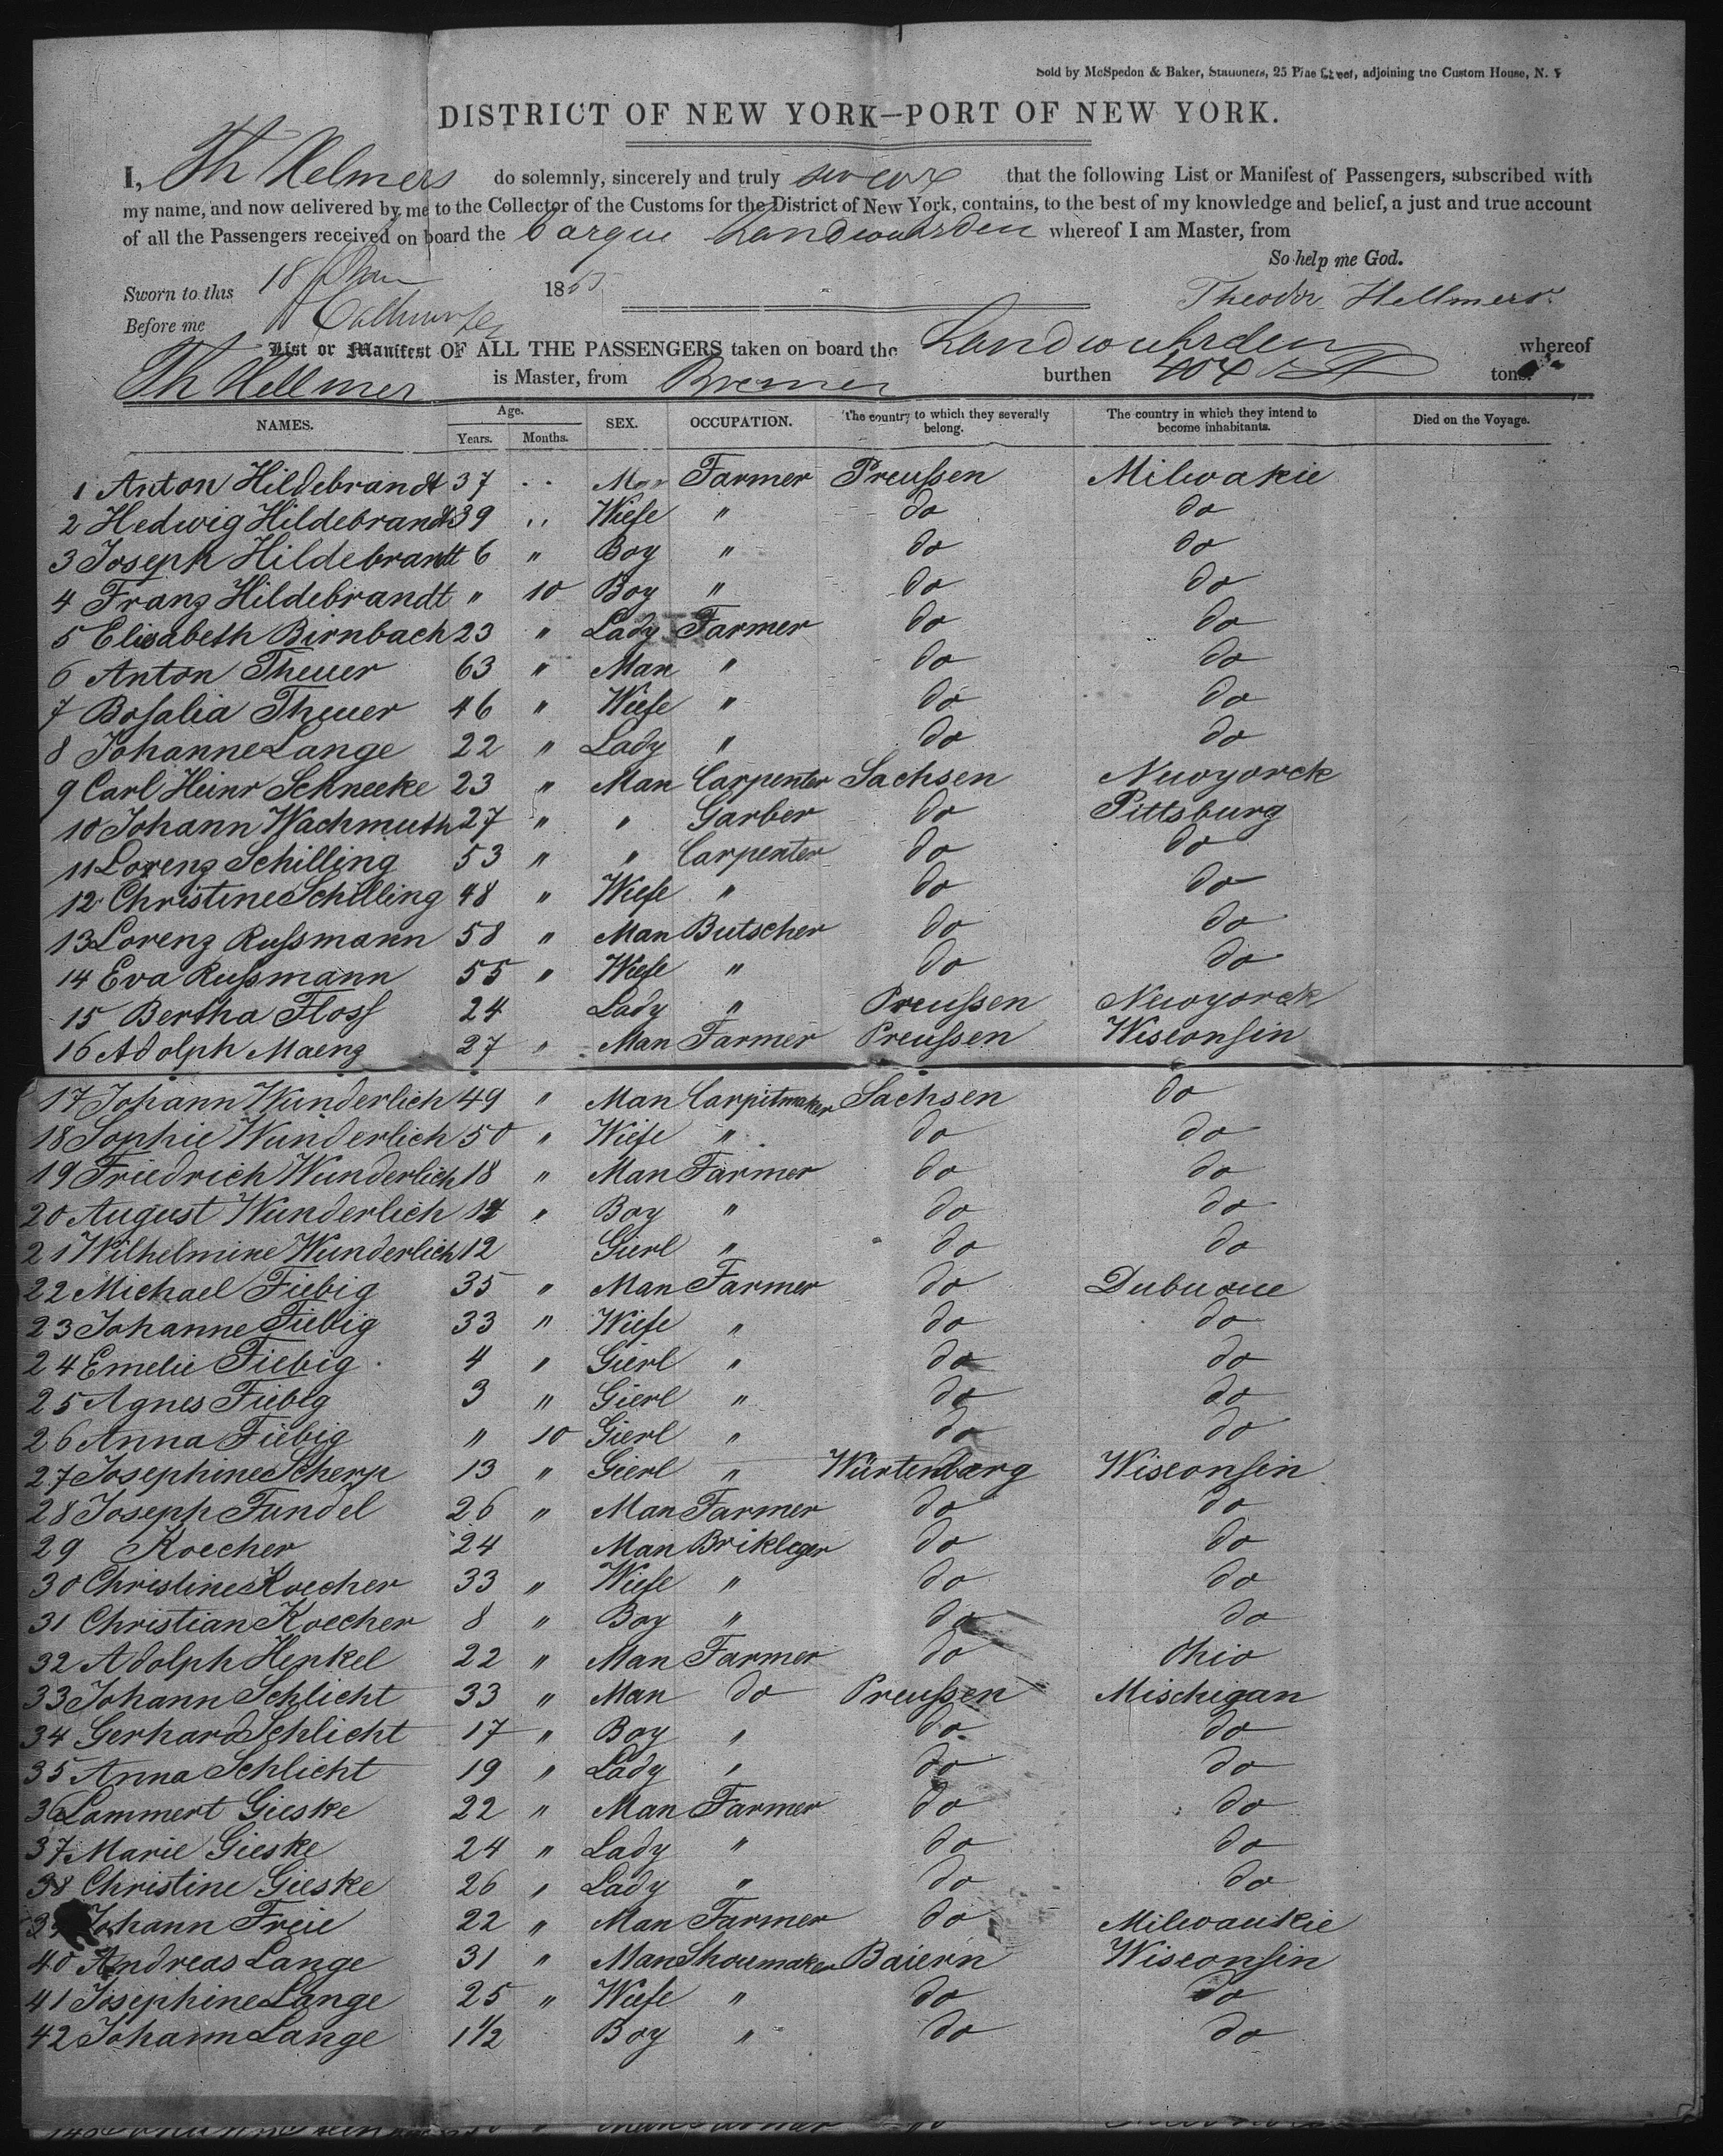 Sold by McSpedon & Baker, Stationers, 25 Pine Street, adjoining the Custom House, N. Y
DISTRICT OF NEW YORK—PORT OF NEW YORK.
I, Th Helmers do solemnly, sincerely and truly swear that the following List or Manifest of Passengers, subscribed with
my name, and now delivered by me to the Collector of the Customs for the District of New York, contains, to the best of my knowledge and belief, a just and true account
of all the Passengers received on board the barque Landwuhrden whereof I am Master, from
So help me God.
Sworn to this 18 1855 Theodor Hellmers
Before me
List or Manifest OF ALL THE PASSENGERS taken on board the Landwuhrden whereof
Th Hellmer is Master, from Bremen burthen 404 tons.
NAMES. Age. Years. Months. SEX. OCCUPATION. The country to which they severally belong. The country in which they intend to become inhabitants. Died on the Voyage.
1 Anton Hildebrandt 37 " Man Farmer Preußen Milwakie
2 Hedwig Hildebrandt 39 " Wiefe " do do
3 Joseph Hildebrandt 6 " Boy " do do
4 Franz Hildebrandt " 10 Boy " do do
5 Elisabeth Birnbach 23 " Lady Farmer do do
6 Anton Theuer 63 " Man " do do
7 Rosalia Theuer 46 " Wiefe " do do
8 Johanne Lange 22 " Lady " do do
9 Carl Heinr Schneeke 23 " Man Carpenter Sachsen Newyorck
10 Johann Wachmuth 27 " " Garber do Pittsburg
11 Lorenz Schilling 53 " " Carpenter do do
12 Christine Schilling 48 " Wiefe " do do
13 Lorenz Rußmann 58 " Man Butscher do do
14 Eva Rußmann 55 " Wiefe " do do
15 Bertha Floss 24 Lady " Preußen Newyorck
16 Adolph Maenz 27 " Man Farmer Preußen Wisconsin
17 Johann Wunderlich 49 " Man Carpitmaker Sachsen do
18 Sophie Wunderlich 50 " Wiefe " do do
19 Friedrich Wunderlich 18 " Man Farmer do do
20 August Wunderlich 14 " Boy " do do
21 Wilhelmine Wunderlich 12 Gierl " do do
22 Michael Fiebig 35 " Man Farmer do Dubuque
23 Johanne Fiebig 33 " Wiefe " do do
24 Emelie Fiebig 4 " Gierl " do do
25 Agnes Fiebig 3 " Gierl " do do
26 Anna Fiebig " 10 Gierl " do do
27 Josephine Scherp 13 " Gierl " Würtenberg Wisconsin
28 Joseph Fundel 26 " Man Farmer do do
29 Koecher 24 Man Brikleger do do
30 Christine Koecher 33 " Wiefe " do do
31 Christian Koecher 8 " Boy " do do
32 Adolph Henkel 22 " Man Farmer do Ohio
33 Johann Schlicht 33 " Man do Preußen Mischigan
34 Gerhard Schlicht 17 " Boy " do do
35 Anna Schlicht 19 " Lady " do do
36 Lammert Gieske 22 " Man Farmer do do
37 Marie Gieske 24 " Lady " do do
38 Christine Gieske 26 " Lady " do do
39 Johann Freie 22 " Man Farmer do Milwaukie
40 Andreas Lange 31 " Man Shoumaker Baiern Wisconsin
41 Josephine Lange 25 " Wiefe " do do
42 Johann Lange 1 1/2 Boy " do do